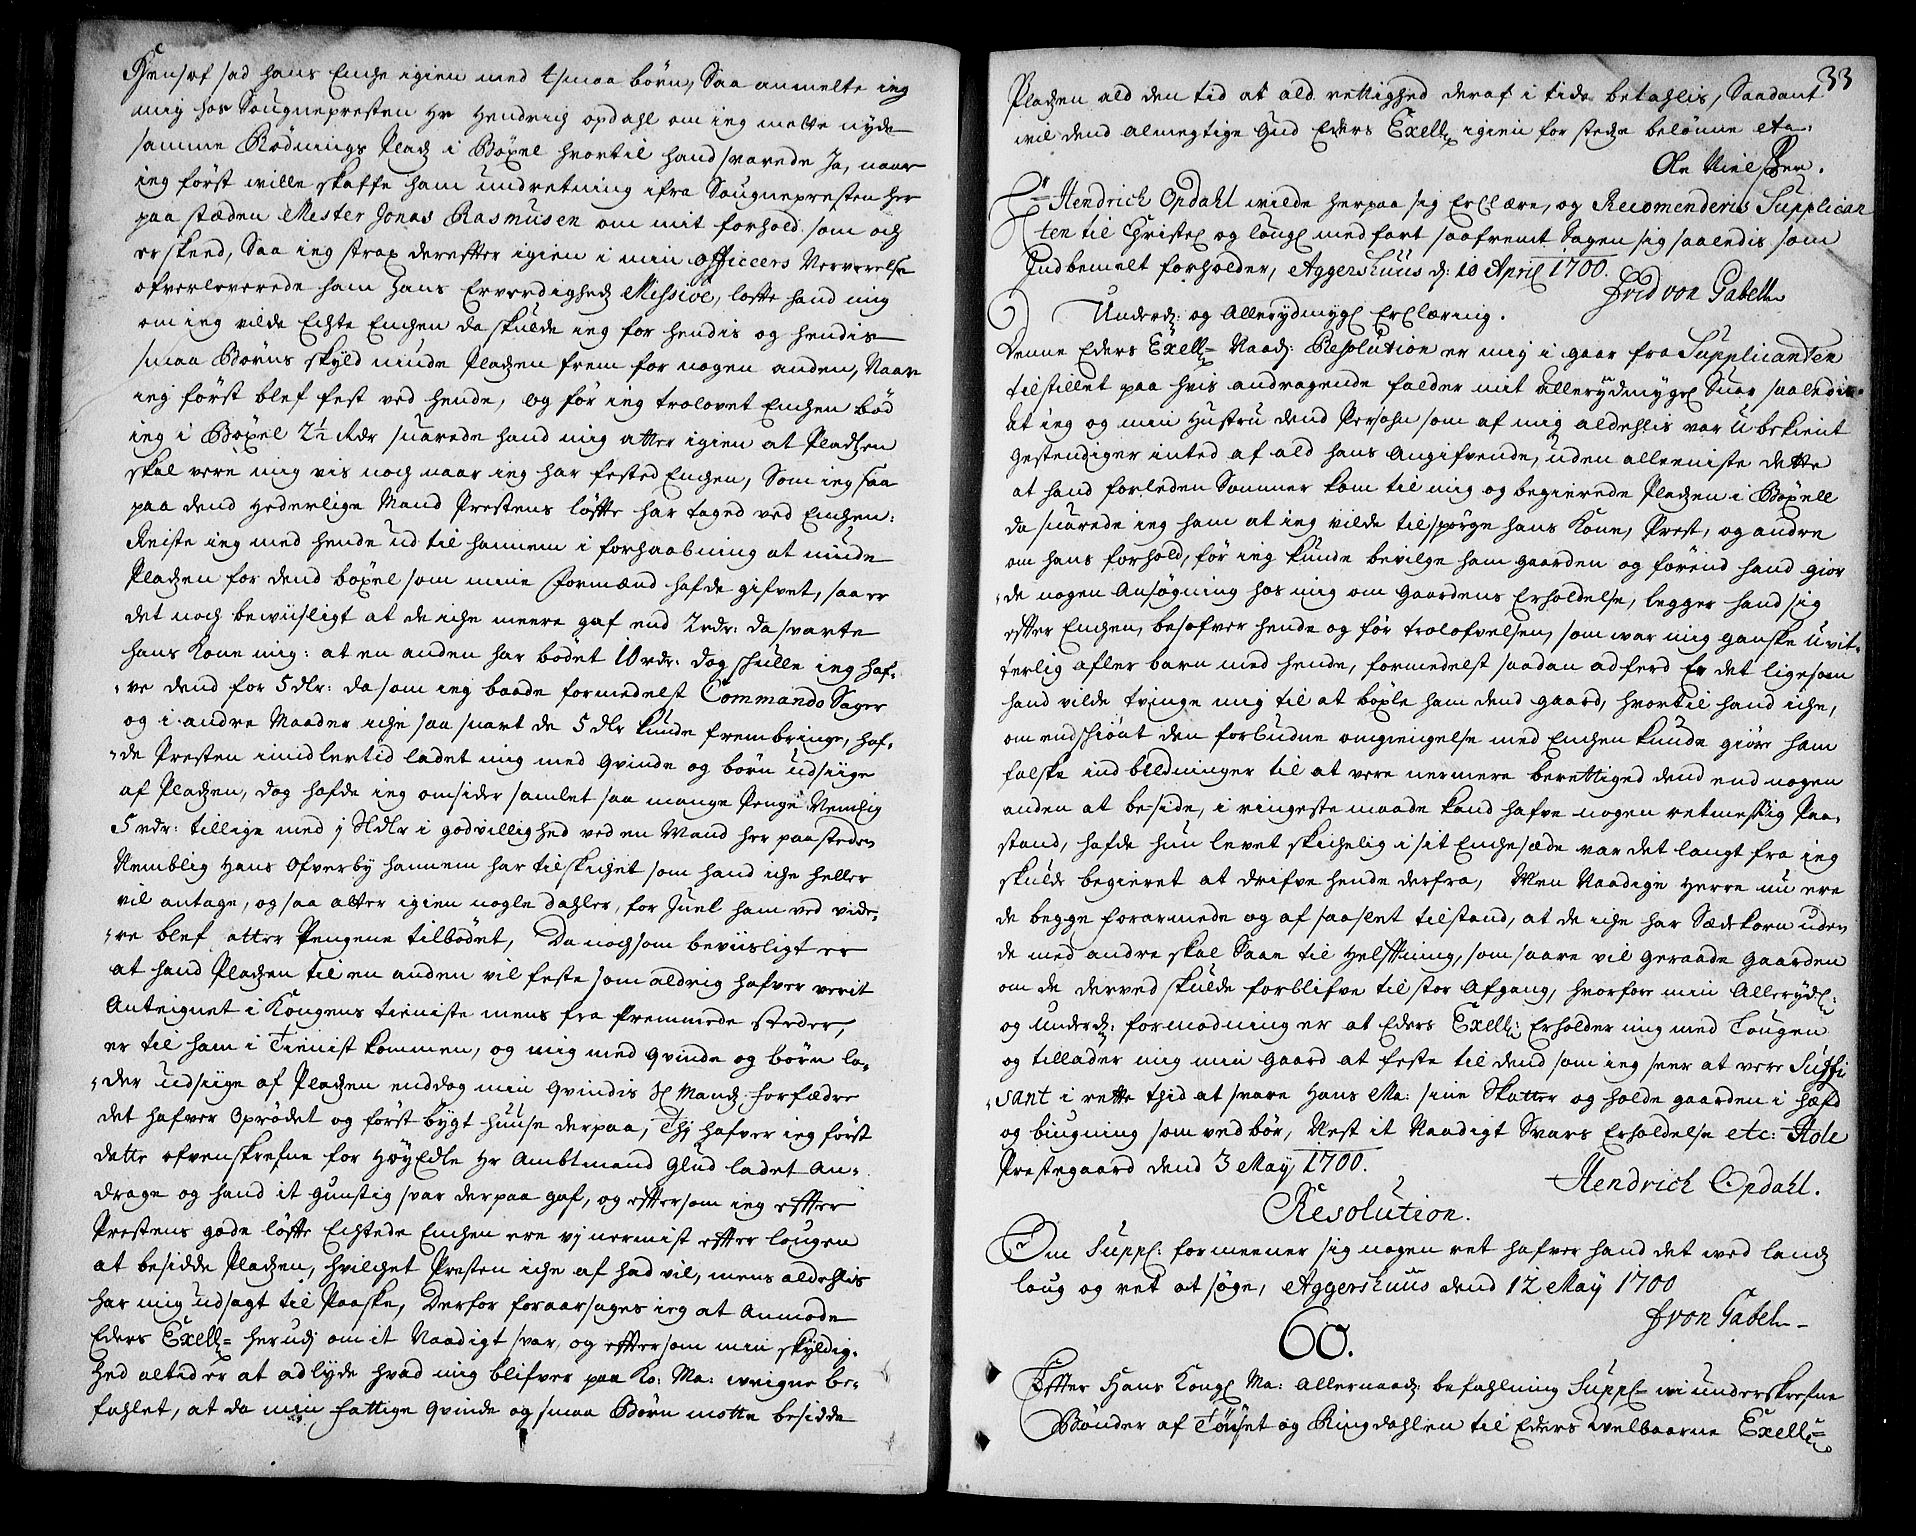 sad hans Enche igien med 4 smaa børn, Saa anmelte ieg
mig hos Sougnepresten Hr Hendrich opdahl om ieg motte nyde
samme Rødnings Pladz i Bøxel hvortil hand svarede Ja, naar
ieg først wille skaffe ham undretning ifra Sougnepresten her
paa stæden Mester Jonas Rasmusen om mit forhold som och
er skeed, Saa ieg strax derefter igien i min officeers Nerverelse
ofverleverede ham Hans Erverdigheds Missive, lofte hand mig
om ieg vilde Echte Enchen da skulde ieg for hendis og hendis
smaa Børns skyld niude Pladzen frem for nogen anden, Naar
ieg først blef fest ved hende, og før ieg trolovet Enchen bød
ieg i Bøxel 2½ Rdr svarede hand mig atter igien at Pladzen
skal vere mig vis noch naar ieg har fested Enchen, Som ieg saa
paa dend Hederlige Mand Prestens løffte har taged ved Enchen:
Reiste ieg med hende ud til hannem i forhaabning at niude
Pladzen for dend böxel som mine Formænd hafde gifvet, saa er
det noch beviisligt at de iche meere gaf end 2 rdr: da svarte
hans Kone mig: at en anden har bodet 10 rdr: dog schulle ieg haf-
ve dend for 5 dlr: da som ieg baade formedelst Commando Sager
og i andre Maader iche saa snart de 5 dlr kunde frembringe, haf-
de Presten imidlertid ladet mig med Qvinde og børn udsiige
af Pladzen, dog hafde ieg omsider samlet saa mange Penge Nemlig
5 rdr: tillige med j Sldlr i godvillighed ved en Mand her paa steden
Nemblig Hans Ofverby hannem har tilskichet som hand iche heller
vil antage, og saa atter igien nogle dahler, for Juel ham ved vide-
re blef atter Pengene tilbødet, Da noch som beviisligt er
at hand Pladzen til en anden vil feste som aldrig hafver verit
Anteignet i Kongens tieniste mens fra fremmede steder,
er til ham i Tienist kommen, og mig med qvinde og børn la-
der udsiige af Pladzen enddog min Qvindis Sl Mands forfædre
det hafver oprødet og først bygt huuse derpaa, Thj hafver ieg først
dette ofvenskrefne for HøyEdle Hr Ambtmand Glud ladet An-
drage og hand it gunstig svar derpaa gaf, og eftersom ieg effter
Prestens gode løffte Echtede Enchen ere vj nermist effter lougen
at besidde Pladzen, hvilchet Presten iche af had vil, mens aldehlis
har mig udsagt til Paaske, Derfor foraarsages ieg at Anmode
Eders Exell= herudj om it Naadigt svar, og effter som min skyldig-
hed altid er at adlyde hvad mig blifver paa Ko: Ma: wegne be-
fahlet, at da min fattige qvinde og smaa Børn motte besidde
33
Pladzen ald den tid at ald rettighed deraf i tide betahlis, Saadant
vil dend almegtige Gud Eders Exell= igien for steden belønne etc:
Ole Nielsen.
Hr Hendrich Opdahl wilde herpaa sig Erclære, og Recomenderis Supplican
ten til Christel og lougl medfart saafremt Sagen sig saaledis som
Indbemelt forholder, Aggershuus d: 10 April 1700.
Frid von Gabell
Underd: og Allerydmygl Erclæring.
Denne Eders Exell= Naads Resolution er mig i gaar fra Supplicanten
tilstillet paa hvis andragende falder mit allerydmygel Svar saaledis
at ieg og min Hustru dend Persohn som af mig aldehlis var Ubekient
gestendiger inted af ald hans angifvende, uden alleeniste dette
at hand forleden Sommer kom til mig og begierede Pladzen i Bøxell
da svarede ieg ham at ieg vilde tilspørge hans Kone, Prest, og andre
om hans forhold, før ieg kunde bevilge ham gaarden og førend hand gior
de nogen Ansøgning hos mig om gaardens Erholdelse, legger hand sig
efter Enchen, besofver hende og før trolofvelsen, som war mig ganske uvit-
terlig afler barn med hende, formedelst saadan adferd Er det ligesom
hand vilde tvinge mig til at bøxle ham dend gaard, hvortil hand iche,
om endschiønt den forbudne omgiengelse med Enchen kunde giøre ham
falske indbildninger til at vere nermere berettiged dend end nogen
anden at beside, i ringeste maade kand hafve nogen retmessig Paa-
stand, hafde hun levet skichelig i sit Enchesæde var det langt fra ieg
skulde begieret at drifve hende derfra, Men Naadige Herre nu ere
de begge forarmede og af saa slet tilstand, at de iche har Sædekorn uden
de med andre skal Saae til Helftning, som saare vil geraade gaarden
om de derved skulde forblifve til stor Afgang, hvorfore min Allerydl:
og underd: formodning er at Eders Exell: Erholder mig med Lougen
og tillader mig min gaard at feste til dend som ieg seer at vere Suffi
sant i rette thid at svare Hans Ma: sine Skatter og holde gaarden i hæfd
og biugning som ved bør, Nest it Naadigt Svars Erholdelse etc: Hole
Prestegaard dend 3 May 1700.
Hendrich Opdahl.
Resolution.
Om Suppl: formeener sig nogen ret hafver hand det wed landz
loug og ret at søge, Aggershuus dend 12 May 1700
F von Gabel
60.
Effter Hans Kongl Ma: Allernaads befahlning Suppl= wi underskrefne
Bønder af Tønset og Ringdahlen til Eders Welbaarne Exell=